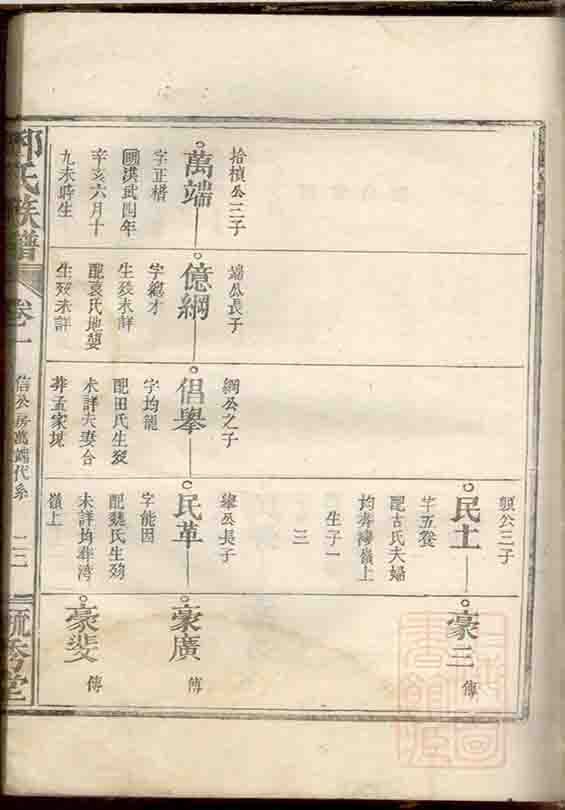 拾楨公三子
萬端
字正楷
國洪武四年
辛亥六月十
九未時生
端公長子
億綱
字總才
生歿未詳
配袁氏地嬰
生歿未詳
綱公之子
倡舉
字均龍
配田氏生歿
未詳夫妻合
葬孟家坝
舉公長子
民革
字能因
配魏氏生歿
未詳均葬湾
嶺上
公三子
民土
字五養
配古氏夫婦
均葬灣嶺上
生子一
三
豪三 傳
豪廣 傳
豪斐 傳
氏族譜
卷一
信公房萬端代系
二二
秀堂